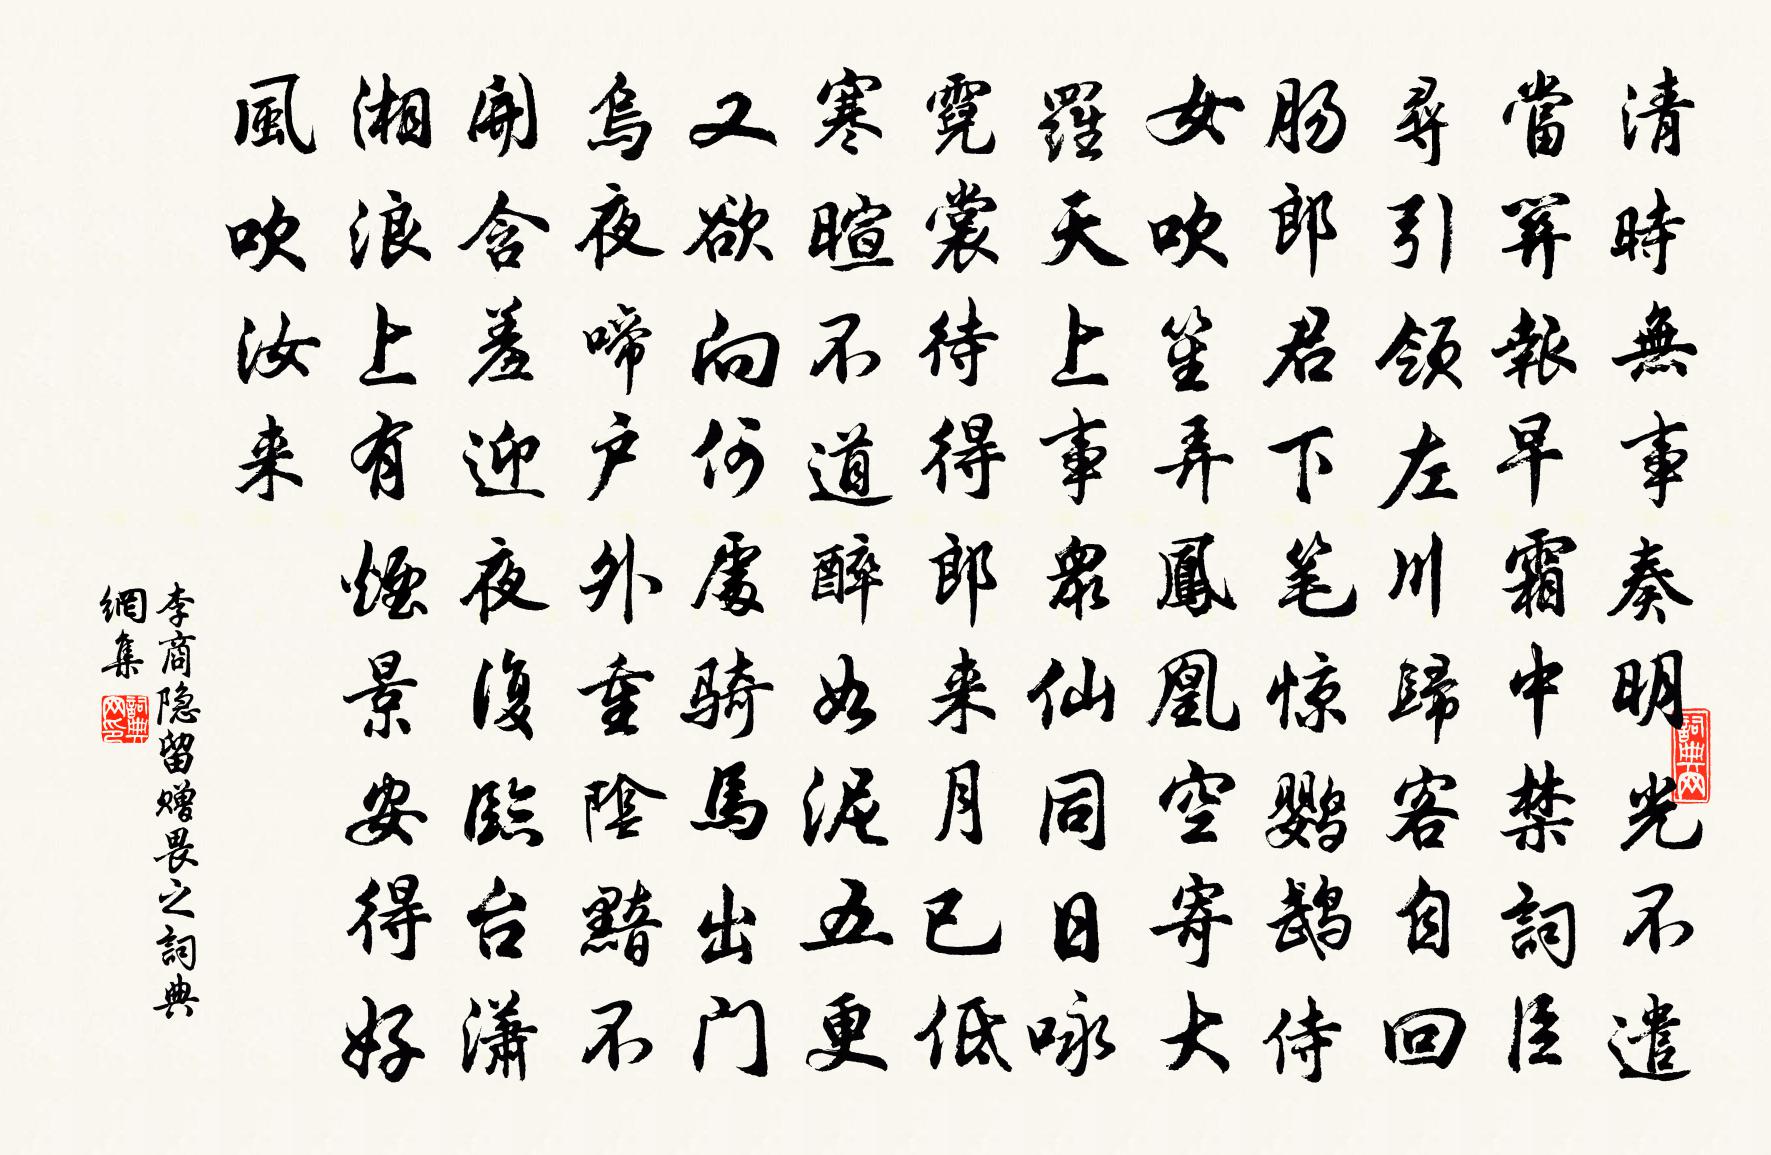 清時無事奏明光不遣
當關報早霜中禁詞臣
尋引領左川歸客自回
腸郎君下笔惊鹦鹉侍
女吹笙弄鳳凰空寄大
羅天上事眾仙同日咏
霓裳待得郎来月已低
寒暄不道醉如泥五更
又欲向何處骑馬出门
烏夜啼户外重陰黯不
開含羞迎夜復臨台潇
湘浪上有煙景安得好
風吹汝来
李商隐留赠畏之詞典
網集
詞典网
詞典网印